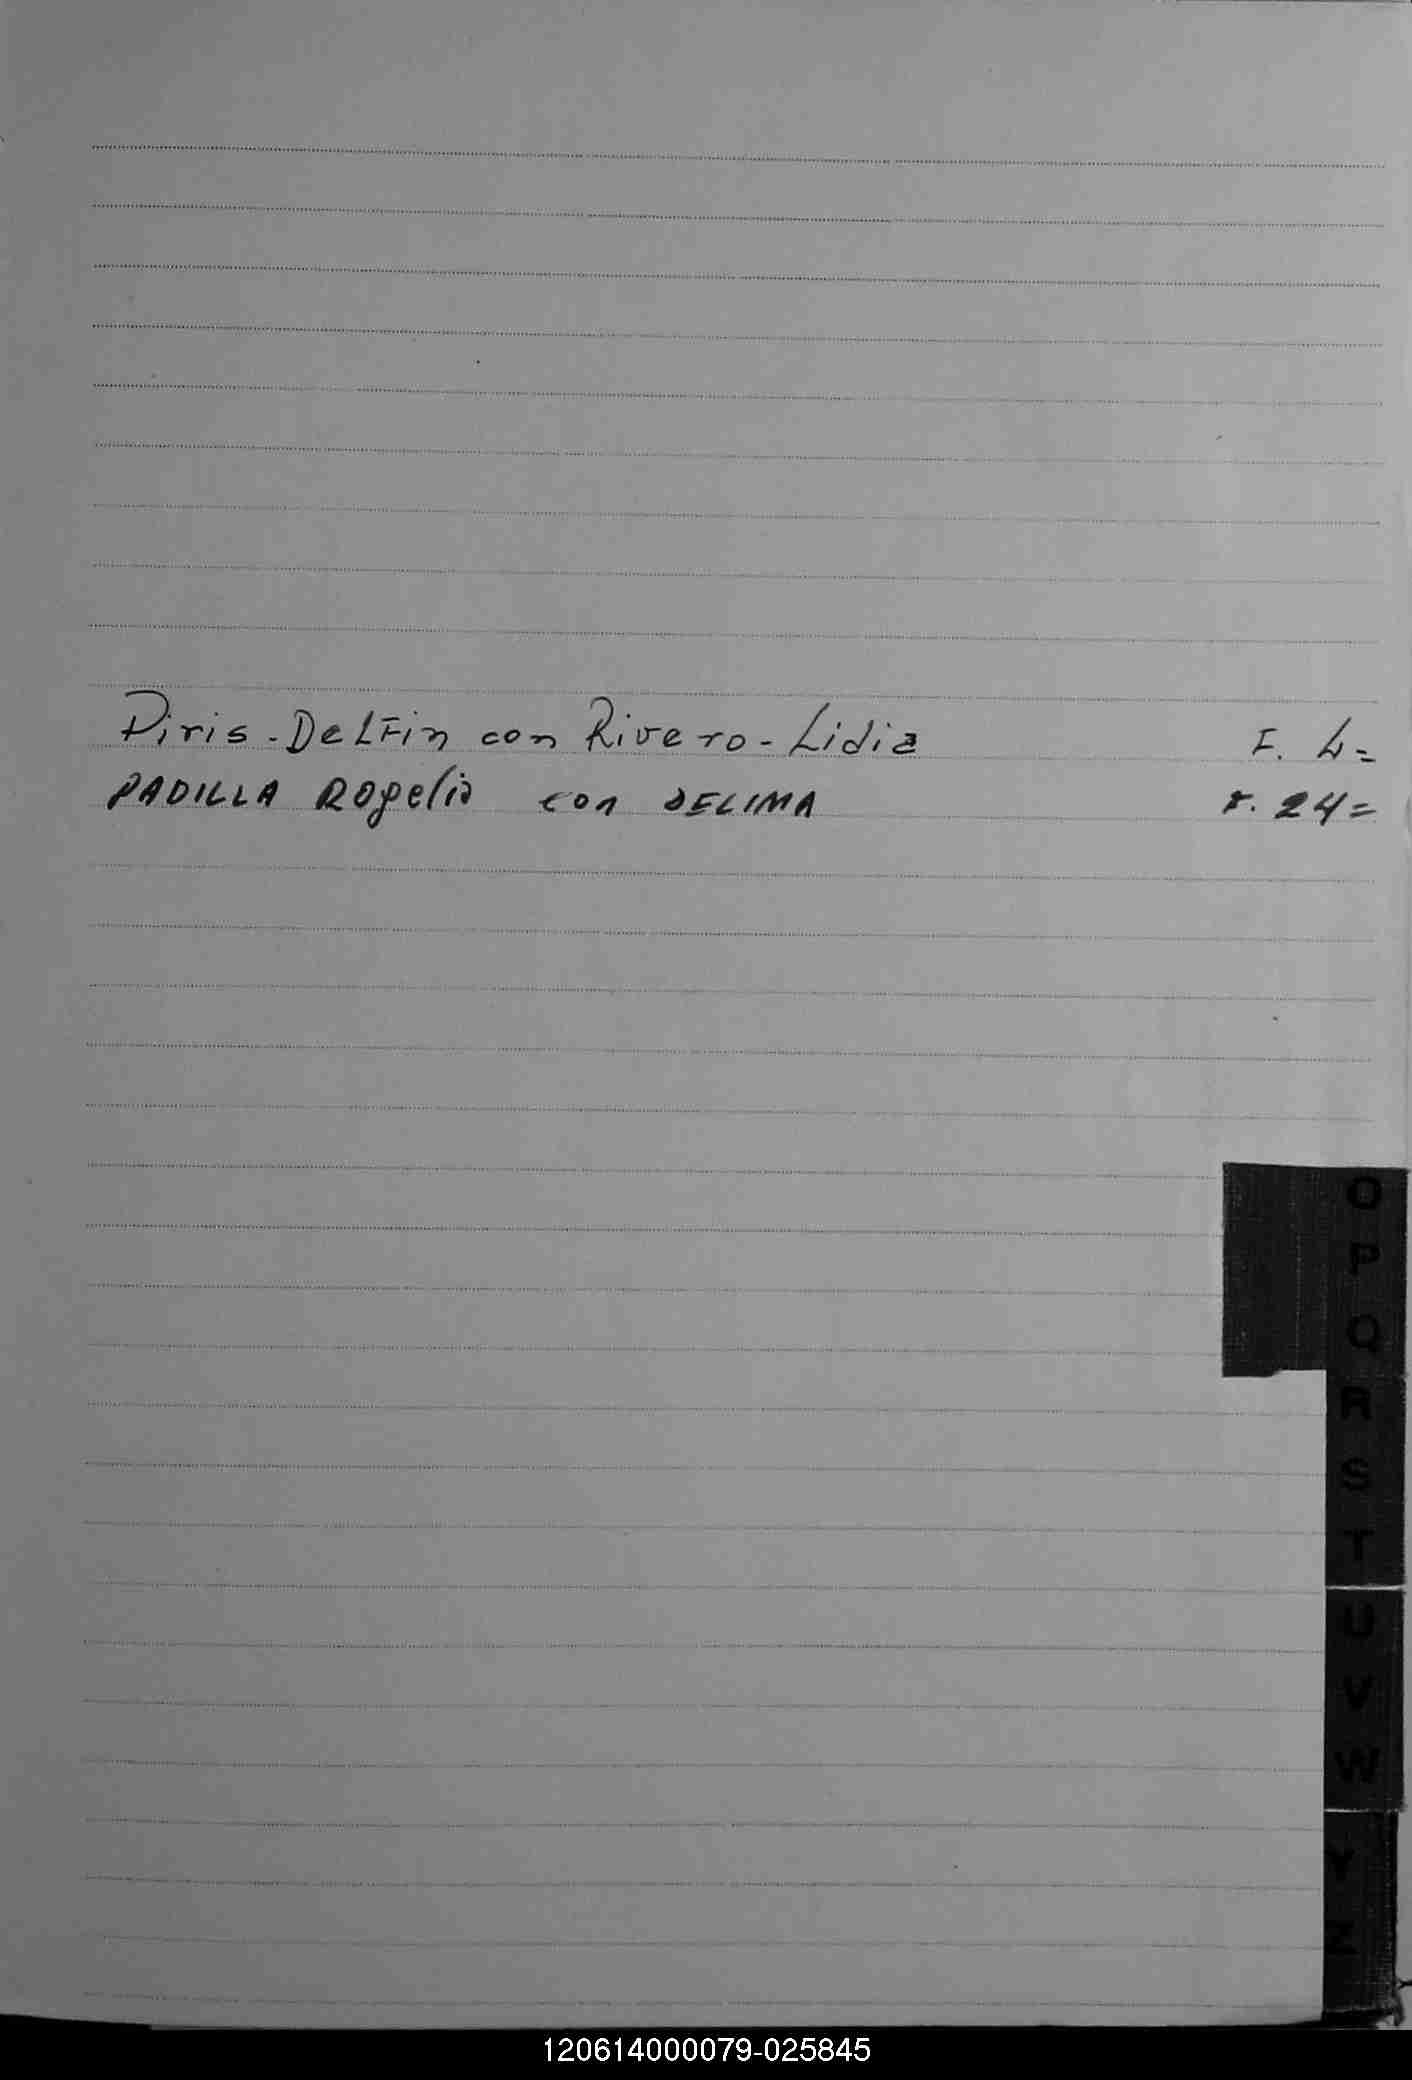 Piris - Delfin con Rivero - Lidia F. 4=
PADILLA Rogelio con DELIMA F. 24=
O
P
Q
R
S
T
U
V
W
Y
Z
120614000079-025845